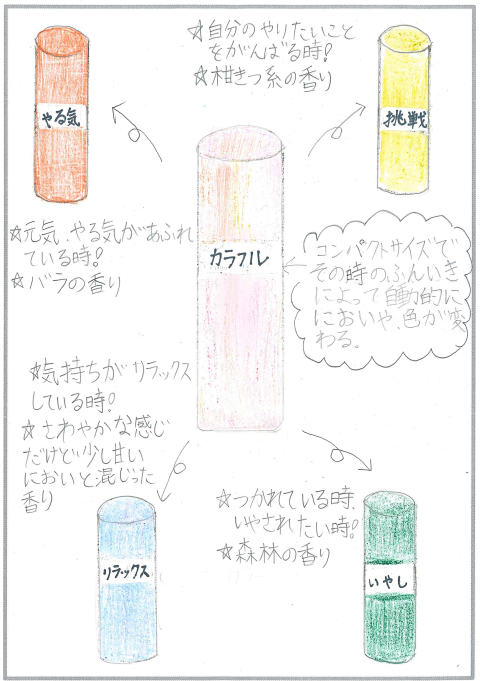 ☆自分のやりたいこと
をがんばる時!
☆柑きつ系の香り
やる気
挑戦
☆元気、やる気があふれ
ている時!
☆バラの香り
カラフル
コンパクトサイズで
その時のふんいき
によって自動的に
においや、色が変
わる。
☆気持ちがリラックス
している時!
☆さわやかな感じ
だけど少し甘い
においと混じった
香り
リラックス
☆つかれている時、
いやされたい時!
☆森林の香り
いやし